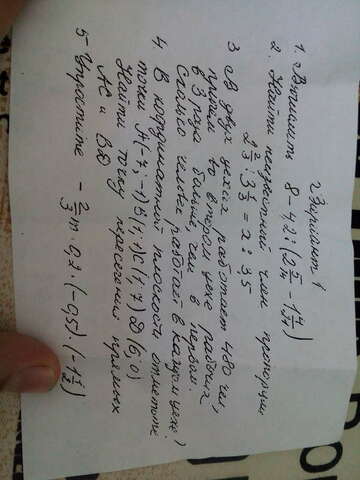 Вариант 1
1. Выполнить 8 - 4,2 : (2 5/14 - 1 4/21)
2. Найти неизвестный член пропорции
2 2/3 : 3 1/3 = x : 35
3 В двух цехах работает 480 чел,
причем во втором цехе рабочих
в 3 раза больше чем в первом.
Сколько человек работает в каждом цехе?
4. В координатной плоскости отметьте
точки A(-7; -1) B(1; 1) C(1; 7) D(6; 0)
Найти точку пересечения прямых
AC и BD
5 Упростите - 2/3 m · 0,2 · (-0,5) · (-1 1/2)